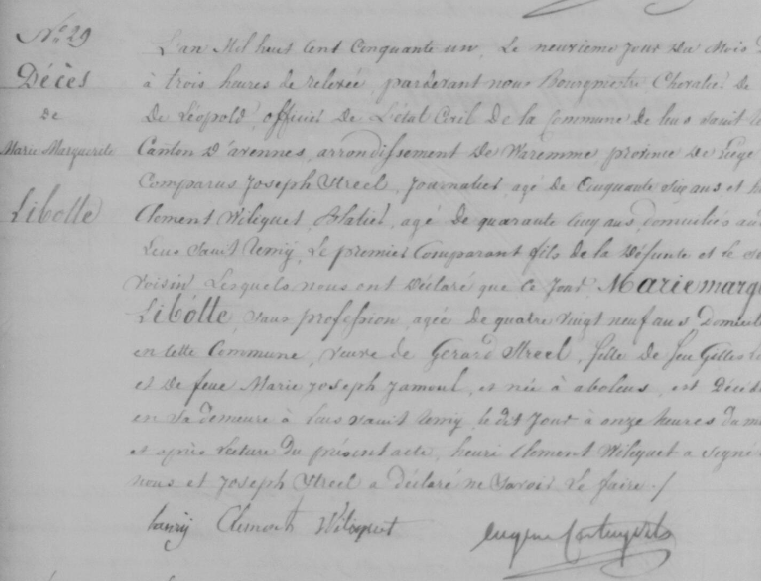 N° 29
Décès
de
Marie Marguerite
Libotte
L'an Mil huit cent Cinquante un, Le neuvième jour du Mois
à trois heures de relevée, pardevant nous Bourgmestre Chevalier de
de Léopold, officier de L'état Civil de la Commune de
Canton D'avennes, arrondissement de Waremme, province de Liège
Comparus Joseph Streel, Journalier, agé de Cinquante six ans et
Clement Wiliquet, agé de quarante ans, domiciliés
Le premier Comparant fils de la Défunte et le
voisin, Lesquels nous ont Déclaré que ce Jour, Marie marg
Libotte, sans profession, agée de quatre vingt neuf ans, Domicil
en cette Commune, veuve de Gerard Streel, fille de feu Gilles
et de feue Marie Joseph Jamoul, et née à aboleus, est Décéd
en sa demeure à le dit Jour à onze heures du
et après lecture du présent acte, henri Clement Wiliquet a signé
nous et Joseph Streel a déclaré ne savoir Le faire ./
henry Clement Wiliquet
eugene